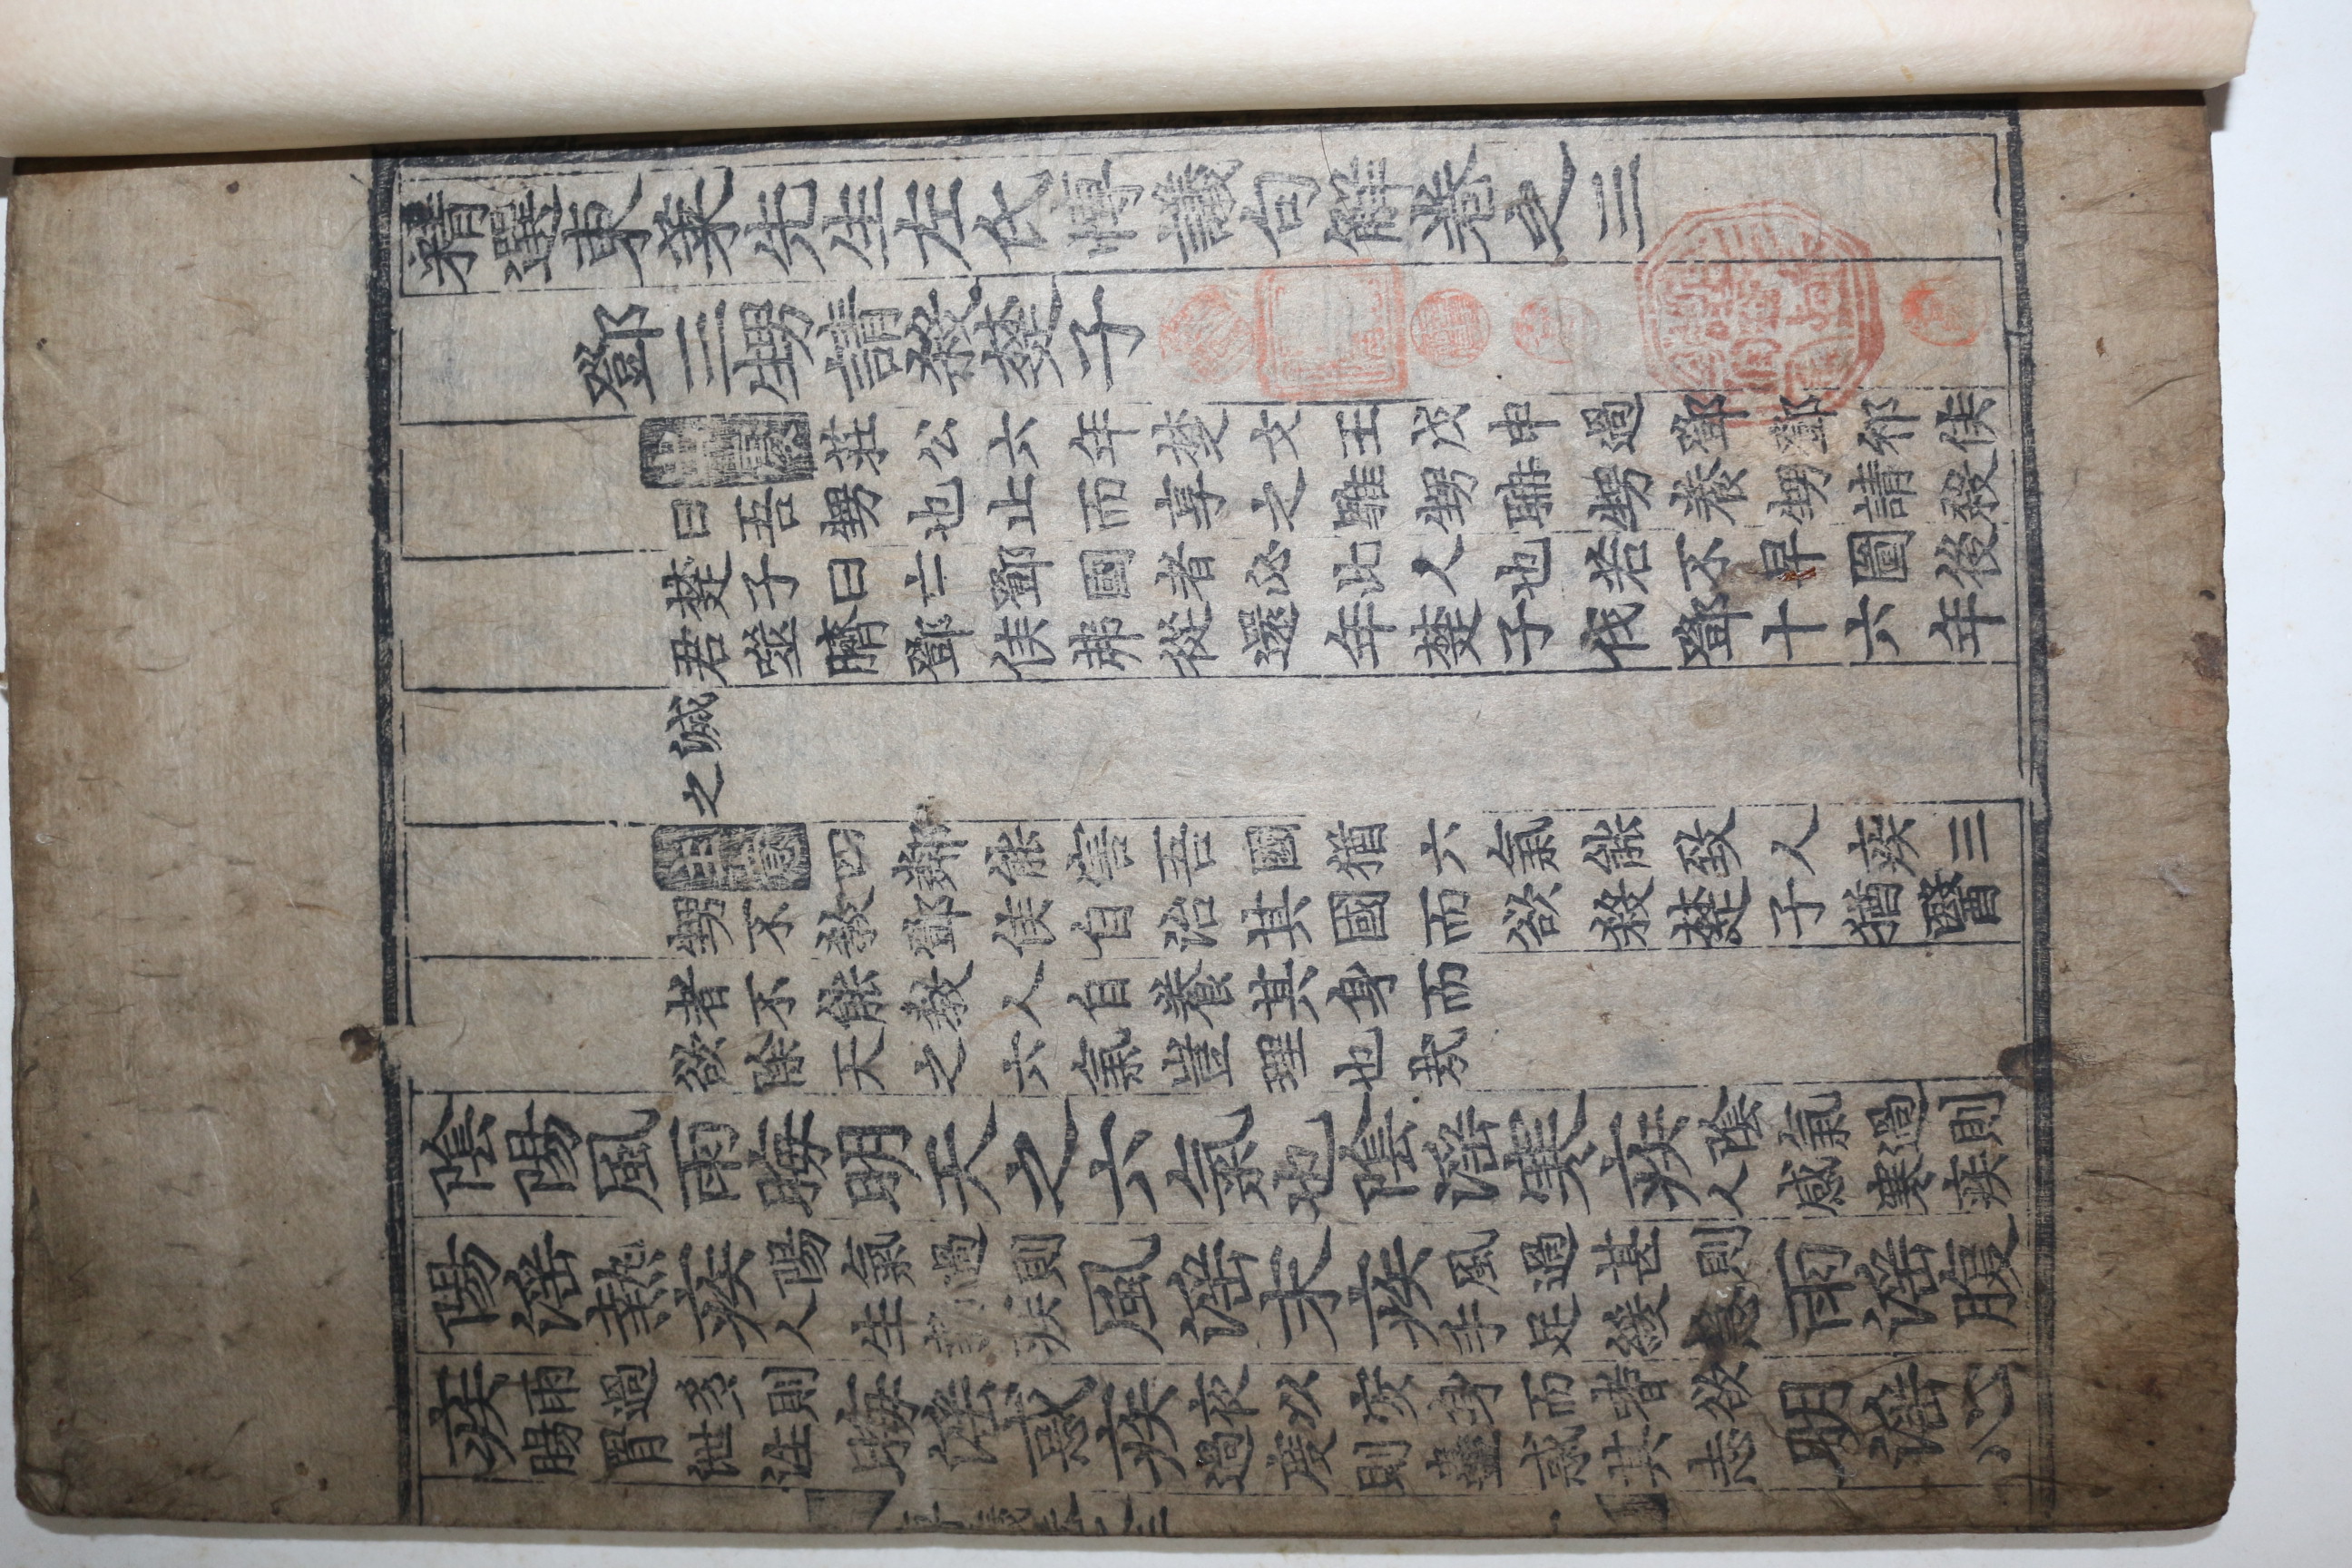 精選東萊先生左氏博議句解卷之三
鄧三甥請殺楚子
出處 莊公六年楚文王戊申過鄧鄧祁侯
曰吾甥也止而享之騅甥聃甥養甥請殺
楚子曰亡鄧國者必此人也若不早圖後
君噬臍鄧侯弗從還年楚子伐鄧十六年
滅
之
主意 四鄰能害吾國猶六氣能致人疾三
甥不教鄧侯自治其國而欲殺楚子猶醫
者不能教人自養其身而
欲除天之六氣豈理也哉
陰陽風雨晦明天之六氣也陰滛寒疾陰氣過則人感寒疾
陽滛熱疾陽氣過則人生熱疾風滛末疾風過甚則手足緩急雨滛腹
疾雨過多則腸胃泄注晦滛惑疾夜以安身而耆欲過度則蠱惑其志明滛心